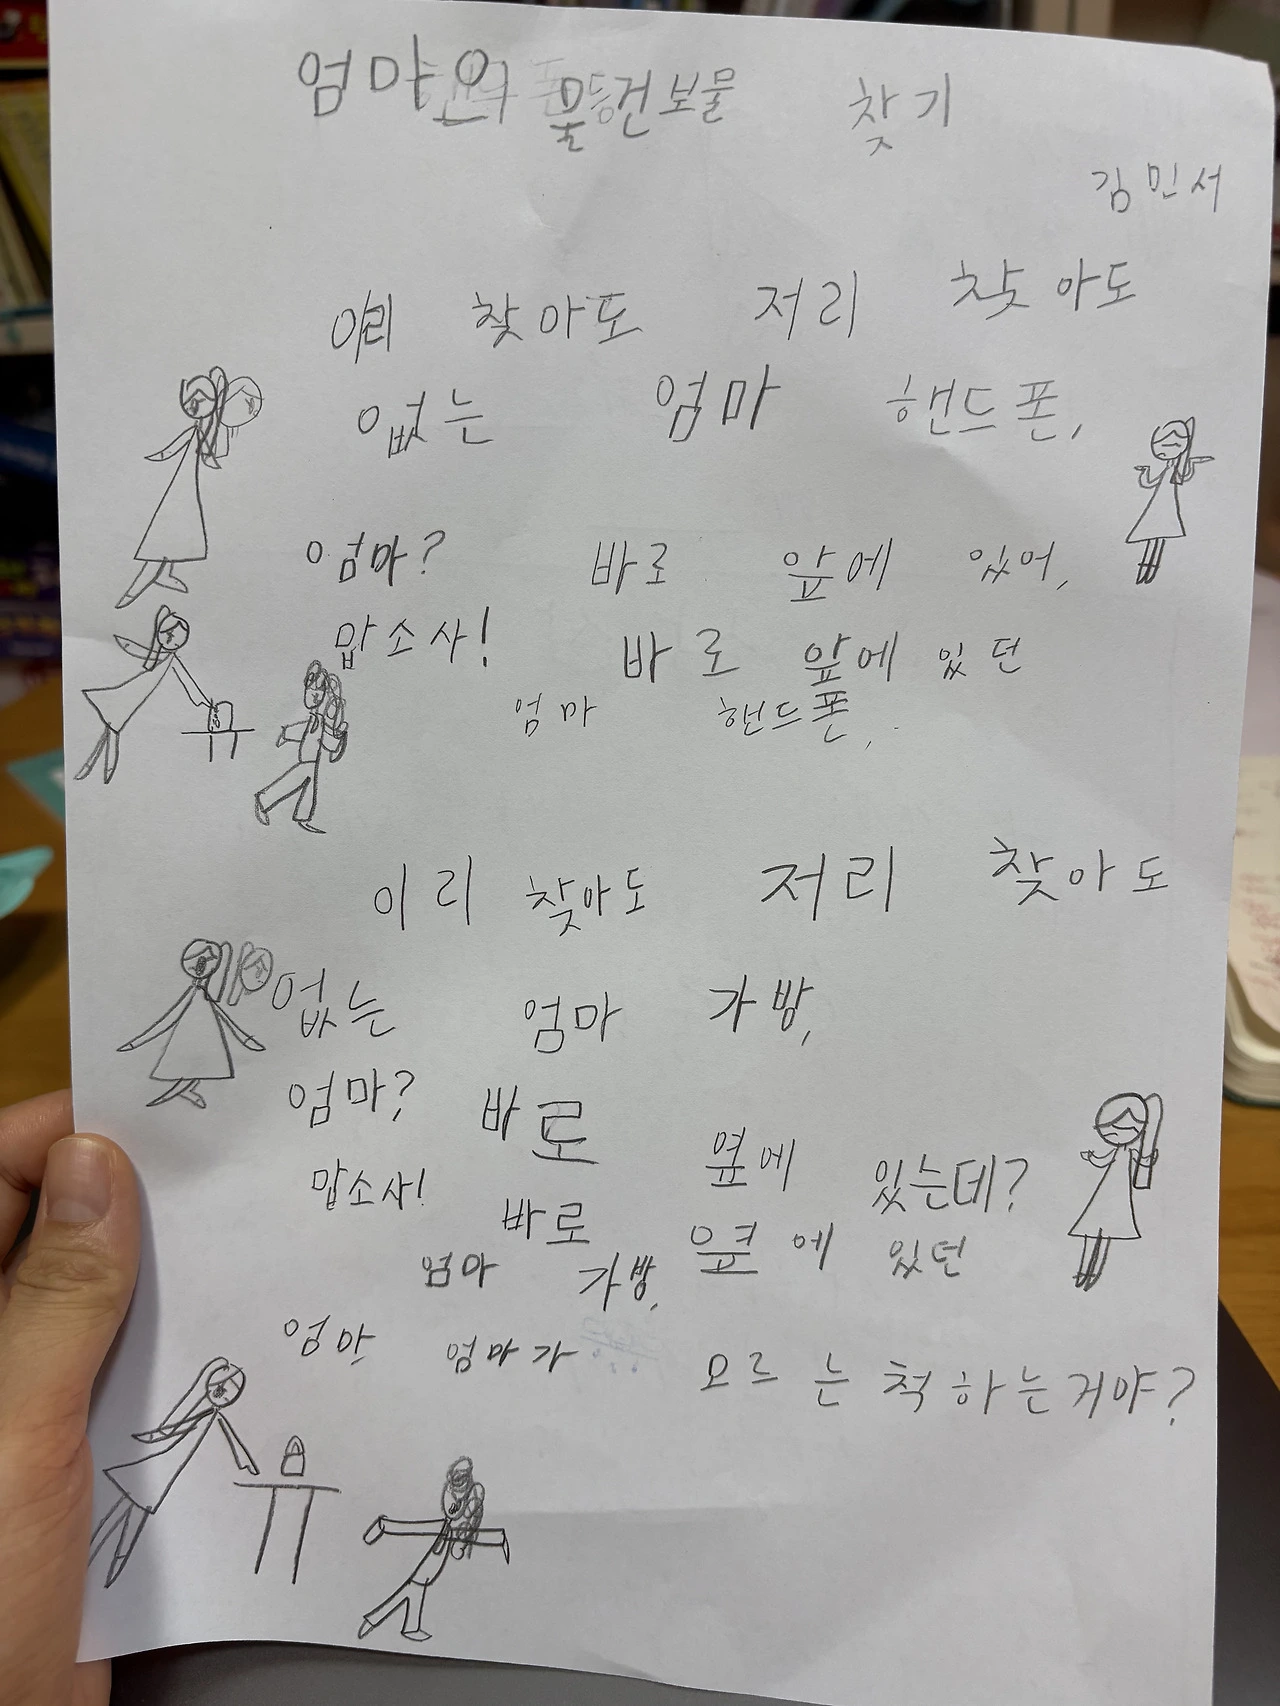 엄마의 물건보물 찾기
김민서
이리 찾아도 저리 찾아도
없는 엄마 핸드폰,
엄마? 바로 앞에 있어,
맙소사! 바로 앞에 있던
엄마 핸드폰,
이리 찾아도 저리 찾아도
없는 엄마 가방,
엄마? 바로 옆에 있는데?
맙소사! 바로 옆에 있던
엄마 가방,
엄마, 엄마가 모르는 척하는거야?